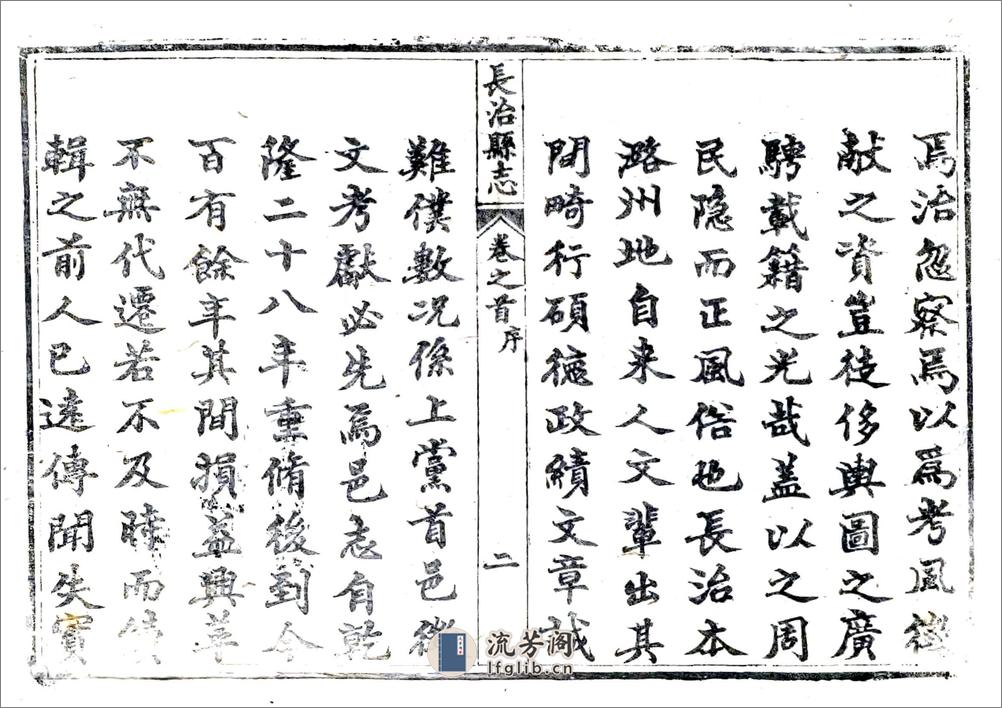 焉治忽察焉以爲考風徵
献之資豈徒侈輿圖之廣
騁載籍之光哉蓋以之周
民隐而正風俗也長治本
潞州地自来人文輩出其
間畸行碩德政績文章誠
長治縣志 卷之首 序 二
難僕數况係上黨首邑徵
文考獻必先焉邑志自乾
隆二十八年重脩後到今
百有餘年其間損益興革
不無代遷若不及時而續
輯之前人已遠傳聞失實
流芳阁
lfglib.cn